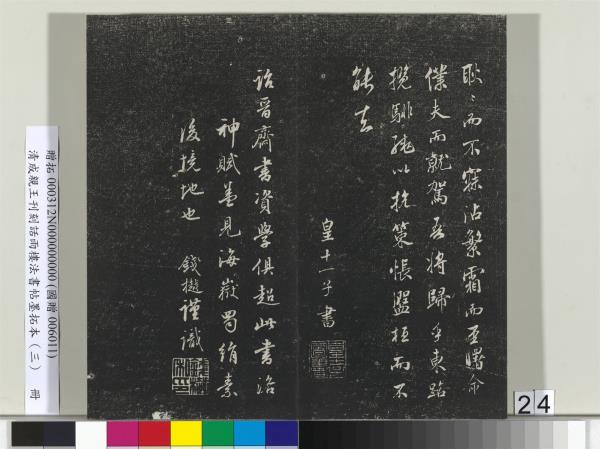 耿〻而不寐沾繁霜而至曙命
僕夫而就駕吾將歸乎東路
攬騑轡以抗策悵盤桓而不
能去
皇十一子書
詒晉齋書資學俱超此書洛
神賦蓋見海嶽蜀絹素
後 地也
錢樾謹識
贈拓000312N000000000 (國贈006011)
清成親王刊刻話雨樓法書帖墨拓本(三) 冊
24